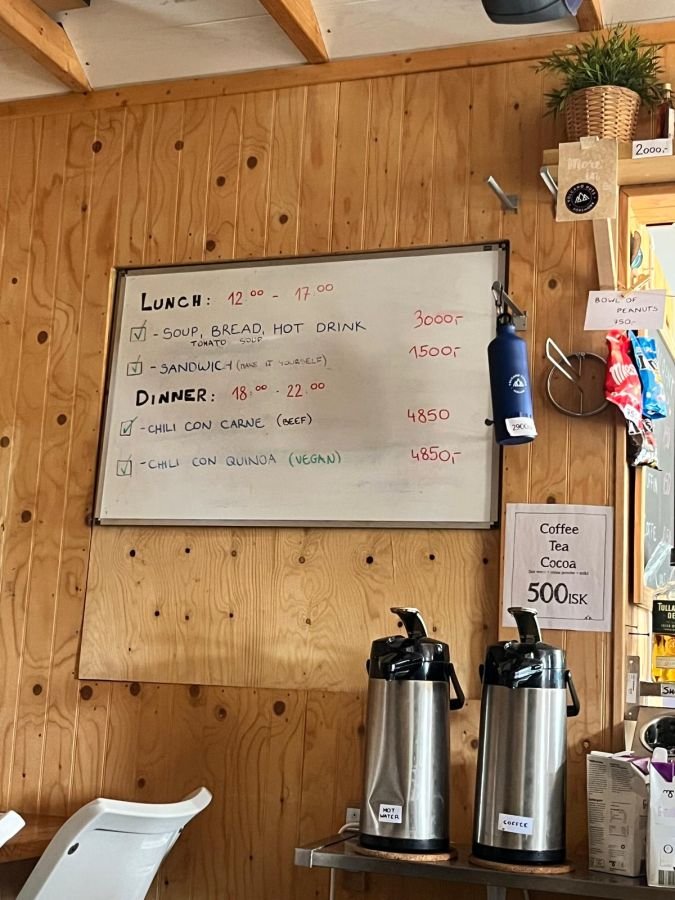 LUNCH: 12.00 - 17.00
- SOUP, BREAD, HOT DRINK 3000,-
TOMATO SOUP
- SANDWICH (MAKE IT YOURSELF) 1500,-
DINNER: 18.00 - 22.00
- CHILI CON CARNE (BEEF) 4850
- CHILI CON QUINOA (VEGAN) 4850,-
2000,-
More
BOWL OF
PEANUTS
750,-
2900
Coffee
Tea
Cocoa
500 ISK
HOT
WATER
COFFEE
TULLA